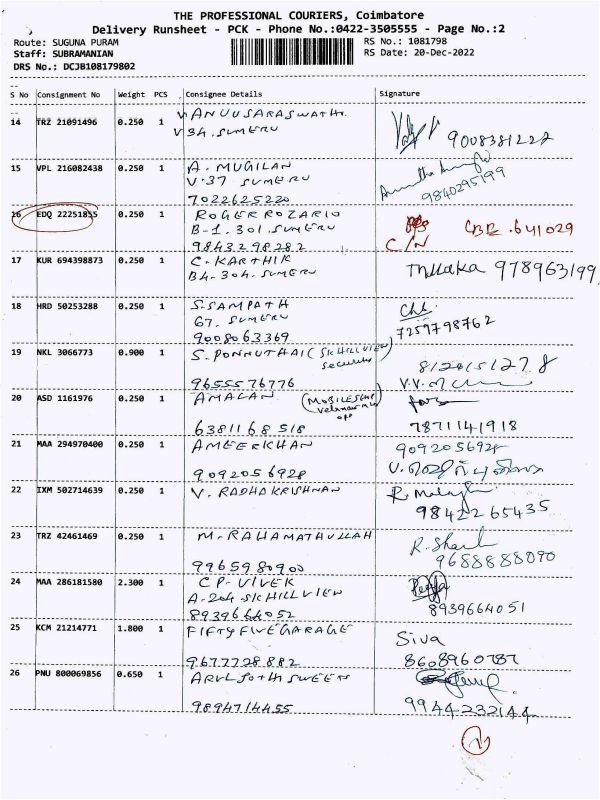 THE PROFESSIONAL COURIERS, Coimbatore
Delivery Runsheet - PCK - Phone No.:0422-3505555 - Page No.:2
Route: SUGUNA PURAM
RS No.: 1081798
Staff: SUBRAMANIAN
RS Date: 20-Dec-2022
DRS No.: DCJB108179802
S No Consignment No Weight PCS Consignee Details Signature
14 TRZ 21091496 0.250 1
V34. SUMERU
9008381222
15 VPL 216082438 0.250 1 A. MUGILAN
V.37 SUMERU
7022625220
9840295199
16 EDQ 22251855 0.250 1 ROGER ROZARIO
B-1.301.SUMERU
9843298282
C/N
.641029
17 KUR 694398873 0.250 1 C. KARTHIK
B4-304.SUMERU
978963199
18 HRD 50253288 0.250 1 S.SAMPATH
67. SUMERU
9008063369
7259798762
19 NKL 3066773 0.900 1 S. PONNUTHAI (SKHILLVIEW
security)
9655576776
20 ASD 1161976 0.250 1 AMALAN
6381168518
7871141918
21 MAA 294970400 0.250 1 AMEERKHAN
9092056928
9092056928
22 IXM 502714639 0.250 1 V. RADHAKRISHNAN
9842265435
23 TRZ 42461469 0.250 1 M. RAHAMATHULLAH
9965980900
9688888090
24 MAA 286181580 2.300 1 CP. VIVEK
A-204 SKHILLVIEW
8939664052
8939664051
25 KCM 21214771 1.800 1 FIFTYFIVEGARAGE
9677728882
Siva
8608960787
26 PNU 800069856 0.650 1 ARUL JOTHI SWEETS
9894714455
9944232144